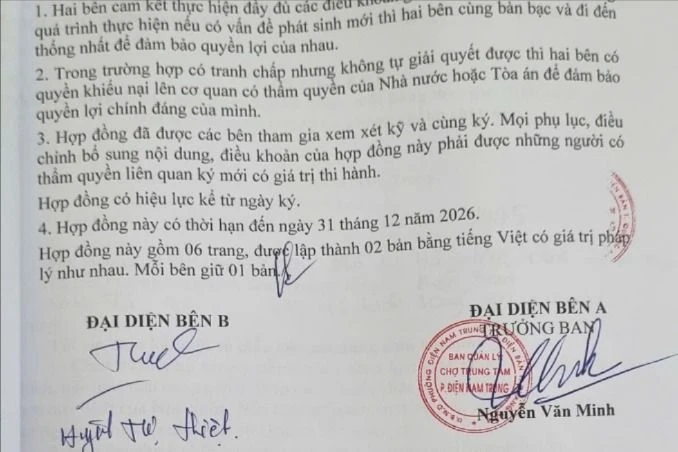 1. Hai bên cam kết thực hiện đầy đủ các điều khoản
quá trình thực hiện nếu có vấn đề phát sinh mới thì hai bên cùng bàn bạc và đi đến
thống nhất để đảm bảo quyền lợi của nhau.
2. Trong trường hợp có tranh chấp nhưng không tự giải quyết được thì hai bên có
quyền khiếu nại lên cơ quan có thẩm quyền của Nhà nước hoặc Tòa án để đảm bảo
quyền lợi chính đáng của mình.
3. Hợp đồng đã được các bên tham gia xem xét kỹ và cùng ký. Mọi phụ lục, điều
chỉnh bổ sung nội dung, điều khoản của hợp đồng này phải được những người có
thẩm quyền liên quan ký mới có giá trị thi hành.
Hợp đồng có hiệu lực kể từ ngày ký.
4. Hợp đồng này có thời hạn đến ngày 31 tháng 12 năm 2026.
Hợp đồng này gồm 06 trang, được lập thành 02 bản bằng tiếng Việt có giá trị pháp
lý như nhau. Mỗi bên giữ 01 bản.
ĐẠI DIỆN BÊN B
Huỳnh Tự Thiệt.
ĐẠI DIỆN BÊN A
TRƯỞNG BAN
BAN QUẢN LÝ
CHỢ TRUNG TÂM
P. ĐIỆN NAM TRUNG
Nguyễn Văn Minh